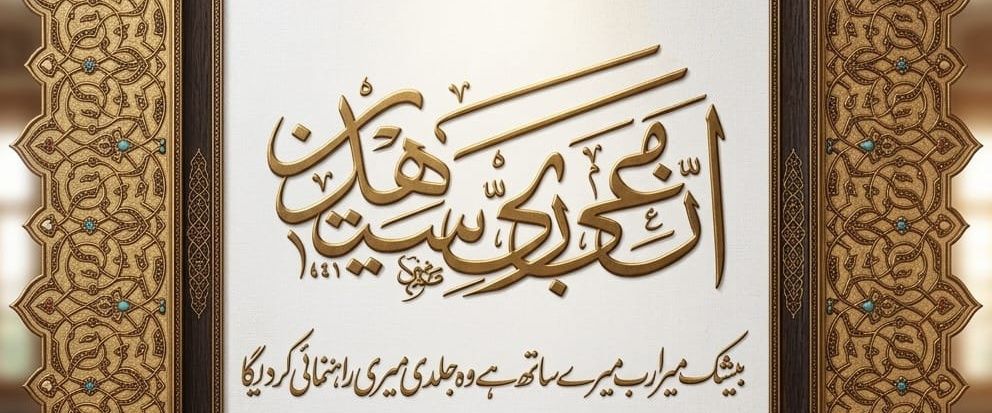 إنّ معي ربّي سيهدين
١٤٤١
بیشک میرا رب میرے ساتھ ہے وہ جلدی میری راہنمائی کر دیگا